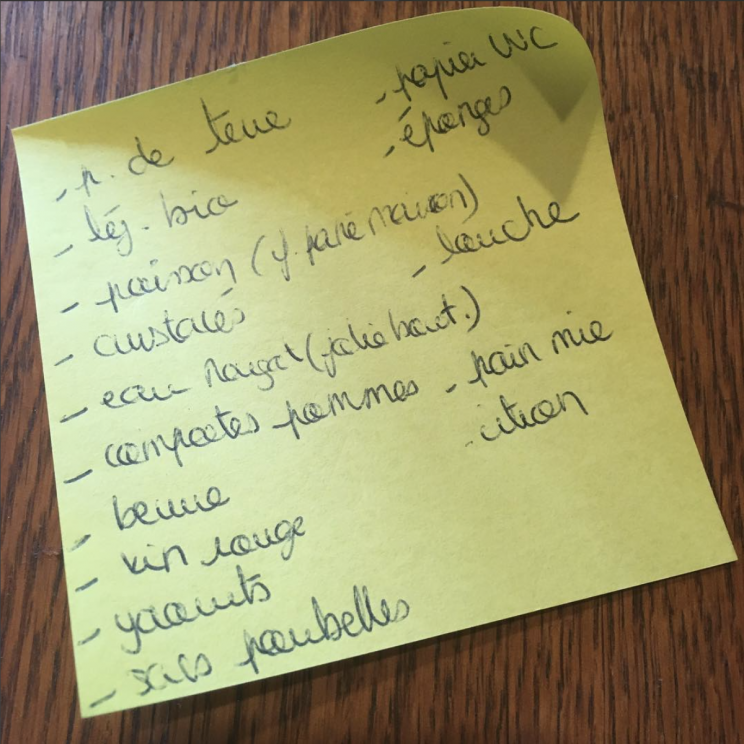 - p. de terre
- lég. bio
- poisson (y. paré maison)
- crustacés
- eau Rozgat (jolie bout.)
- compotes pommes
- beurre
- vin rouge
- yaourts
- sacs poubelles
- papier WC
- éponges
- louche
- pain mie
- citron